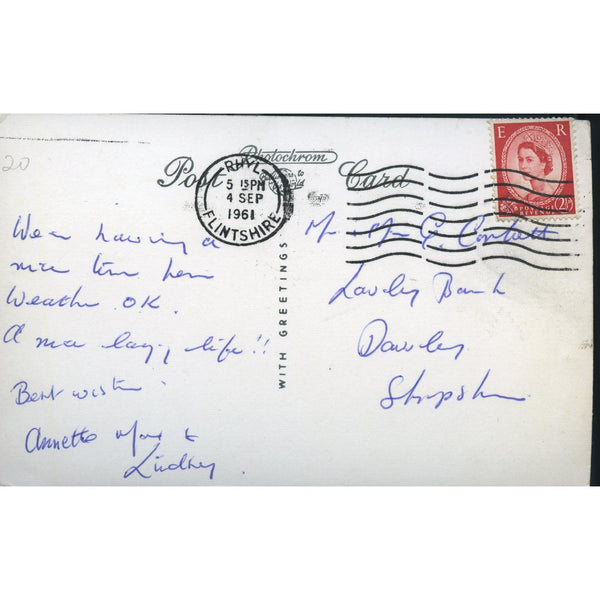 20
Photochrom
Post Card
to
RHYL
5 15 PM
4 SEP
1961
FLINTSHIRE
E R
POSTAGE
REVENUE
2½
We are having a
nice time here
Weather OK.
A nice lazy life!!
Best wishes
Annette &
Lindsey
WITH GREETINGS
Mr Mrs C. Corbett
Bank
Dawley
Shropshire